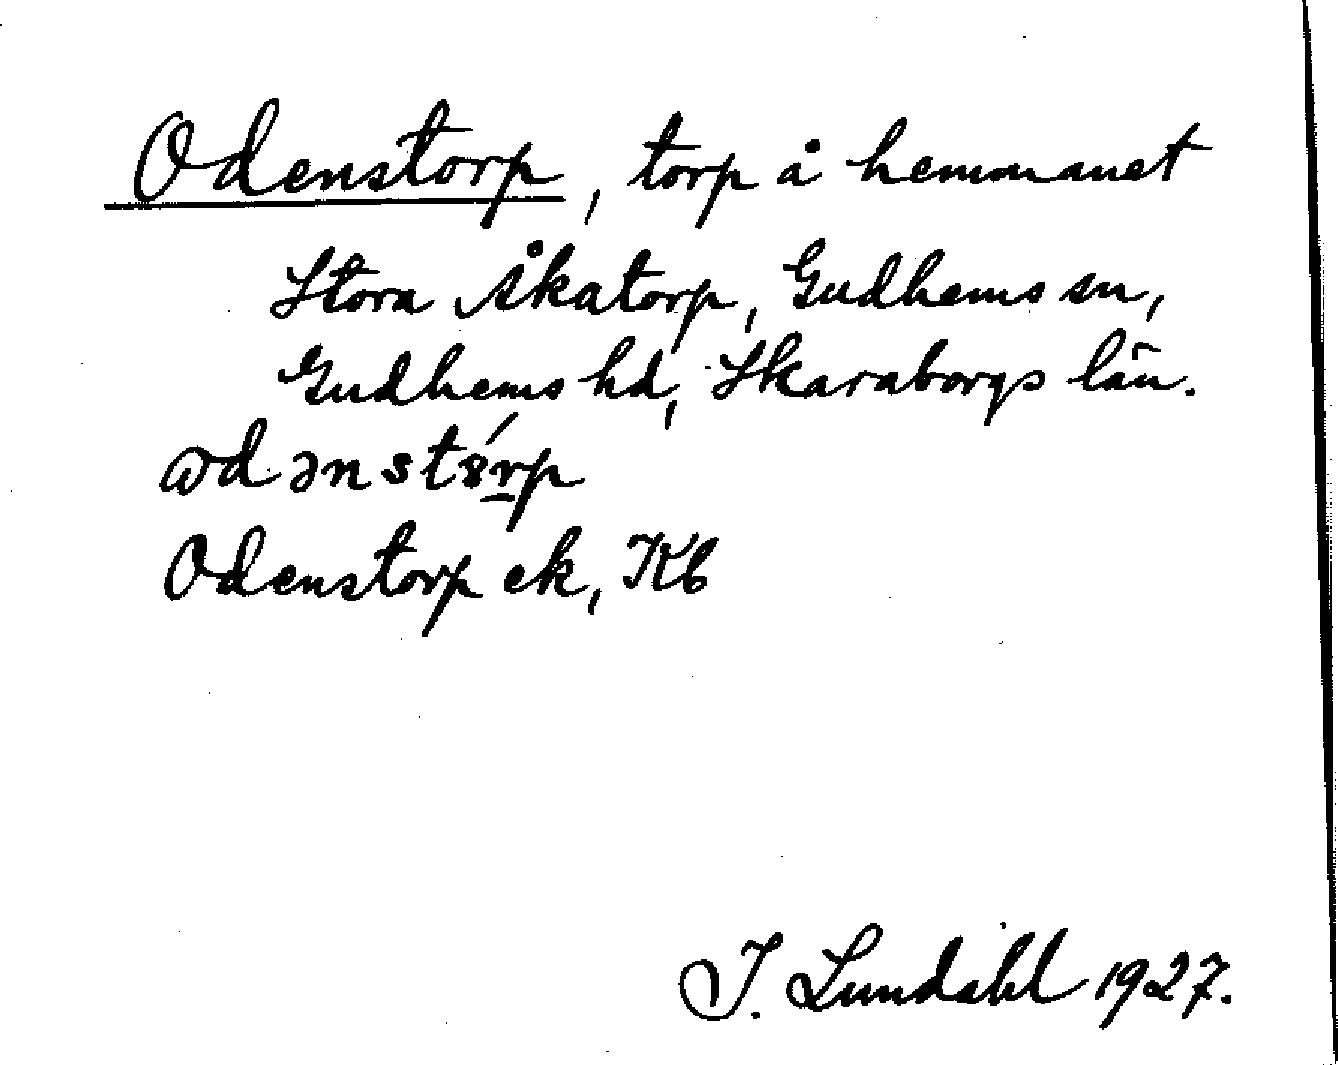 Odenstorp, torp å hemmanet
Stora Åkatorp, Gudhems sn,
Gudhems hd, Skaraborgs län.
Odenstorp ek, Kb
I. Lundahl 1927.